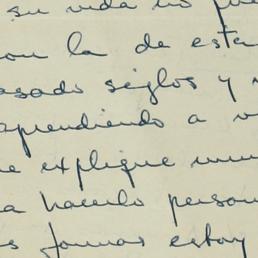 su vida no pue
con la de esta
asado siglos y
aprendiendo a v
e explique
a hacerlo person
s formas estoy